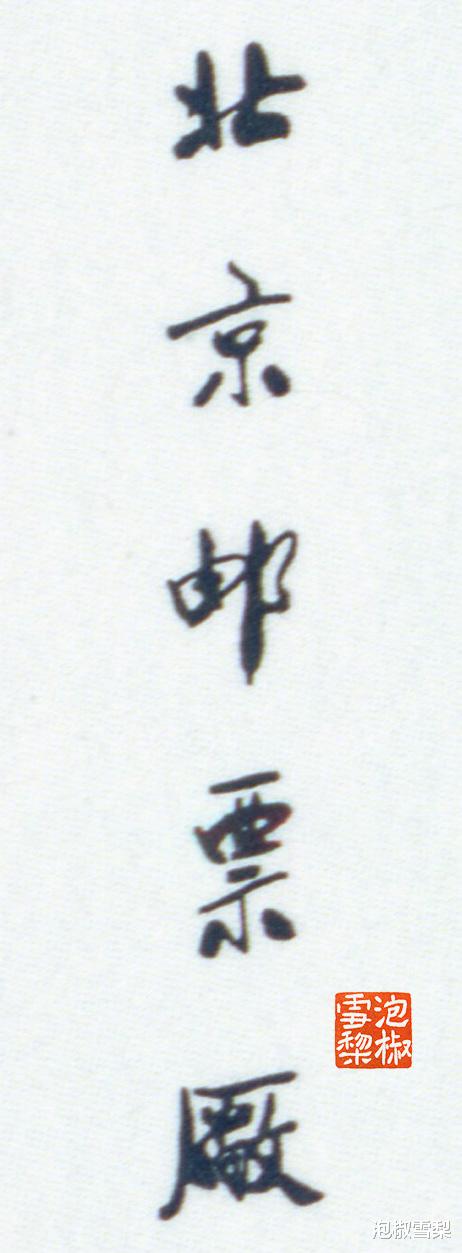 北京邮票厰
泡椒雪梨
泡椒雪梨